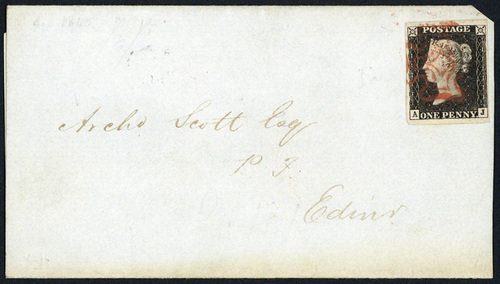 POSTAGE
A J
ONE PENNY
Archd Scott Esq
P. F.
Edinr